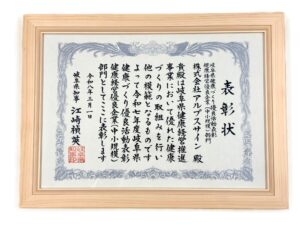 表彰状
岐阜県健康づくり優良活動表彰
健康経営優良企業(中小規模)部門
株式会社アルプスサイン 殿
貴殿は岐阜県健康経営推進
事業において優れた健康
づくりの取組みを行い
他の模範となるものです
よって令和七年度岐阜県
健康づくり優良活動表彰
健康経営優良企業(中小規模)
部門としてここに表彰します
令和八年三月一日
岐阜県知事 江崎禎英